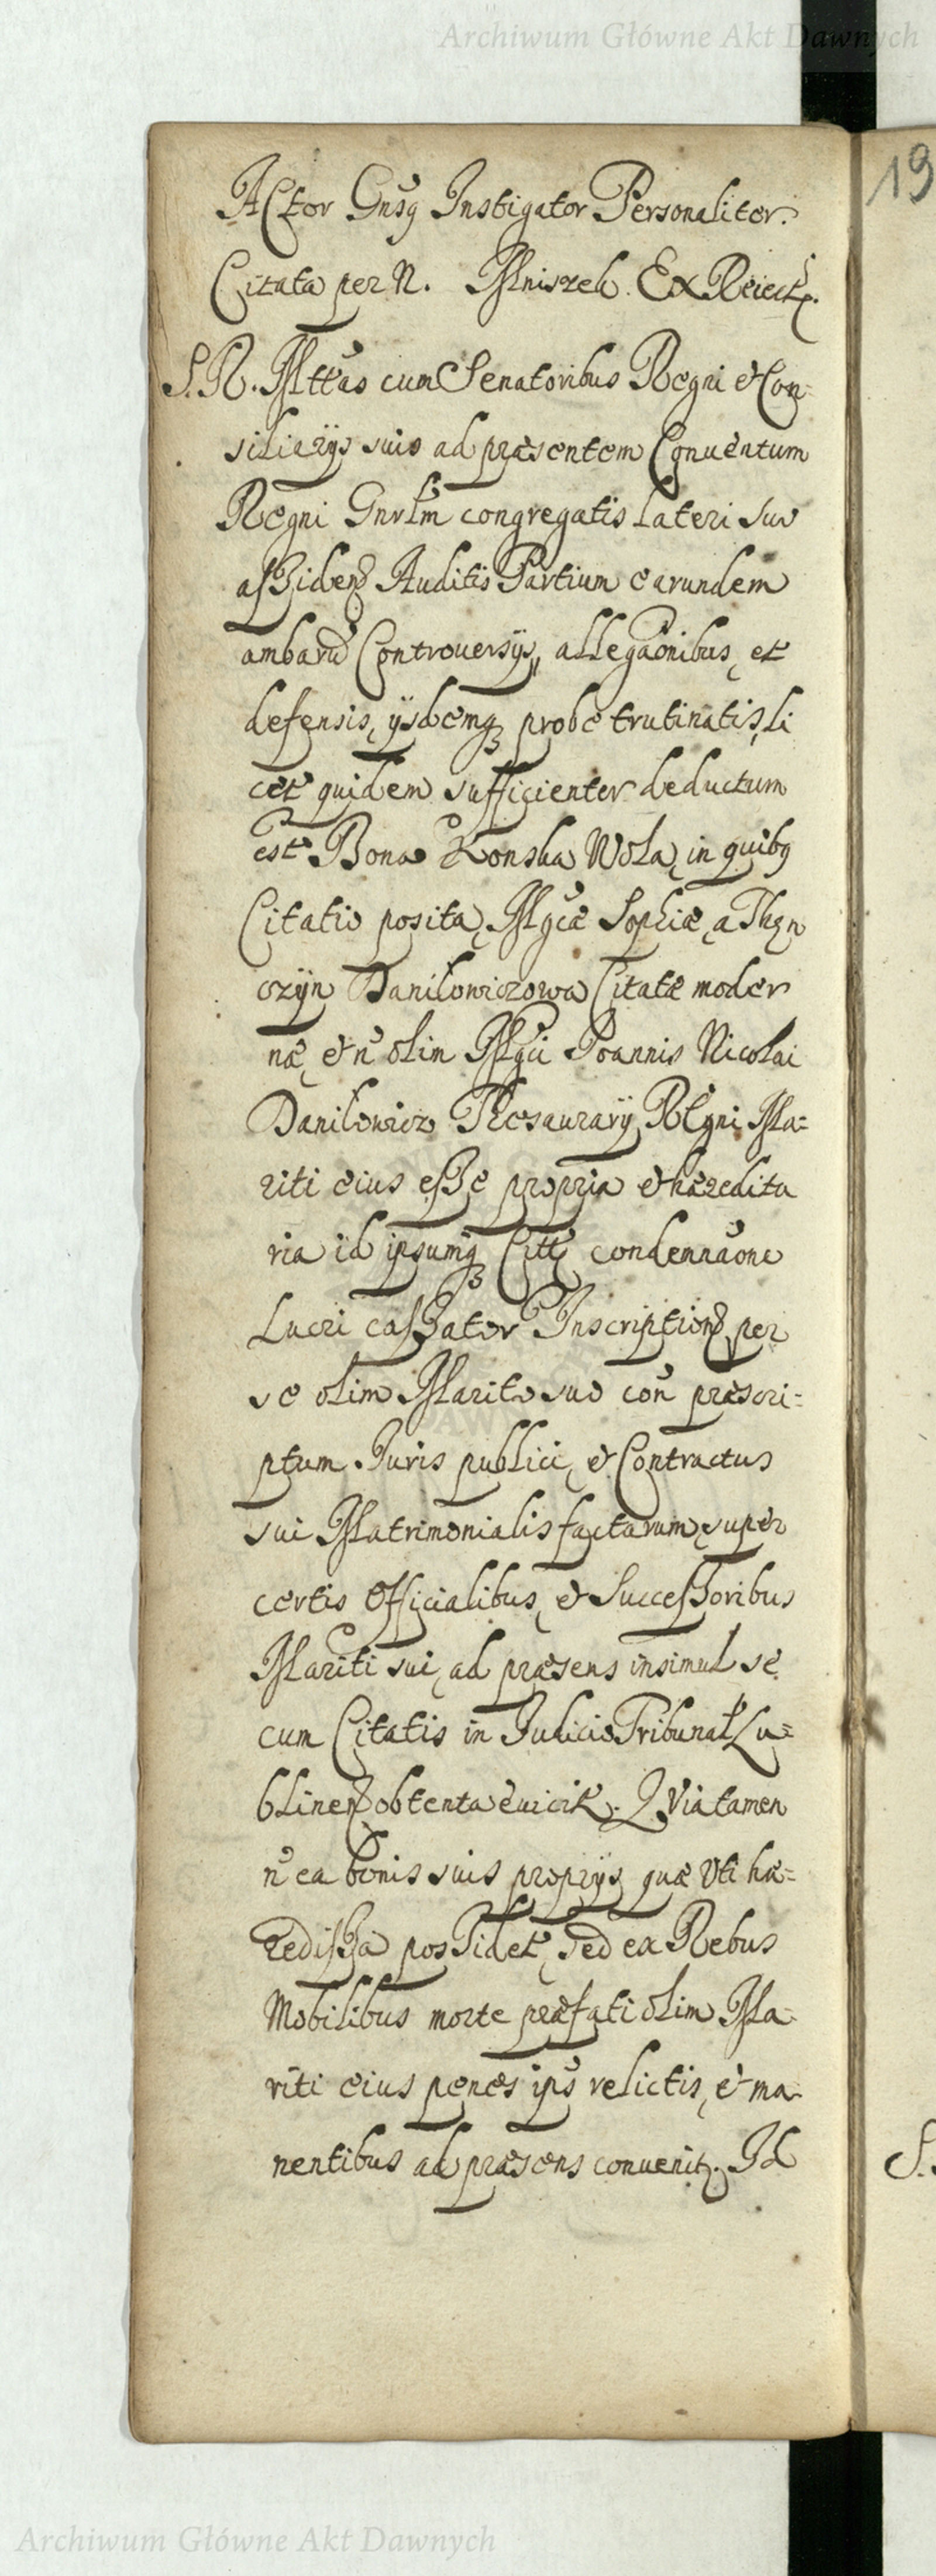 Archiwum Główne Akt Dawnych
19
Actor Gnsq Instigator Personaliter.
Citata per N. Mniszek. Ex Reiect.
S. R. Mttas cum Senatoribus Regni et Con-
siliarijs suis ad præsentem Conuentum
Regni Gnrlm congregatis Lateri Suo
assiden Auditis Partium earundem
ambarū Controuersijs, allegaōnibus, et
defensis, ijsdemq probe trutinatis, li
cet quidem sufficienter deductum
est Bona Konska Wola, in quibq
Citatio posita, Mgcæ Sophiæ, a Thęn
czÿn Daniłowiczowa Citatæ moder
næ, et n olim Mgci Joannis Nicolai
Daniłowicz Thesaurarÿ Regni Ma=
riti eius esse propria et hæredita
ria id ipsumq Citt condemnāone
Lucri cassator Inscription per
se olim Marito suo con præscri=
ptum Juris publici, et Contractus
sui Matrimonialis factarum, super
certis Officialibus, et Successoribus
Mariti sui, ad præsens insimul se
cum Citatis in Judicio Tribunal Lu=
blinen obtenta euicit. Quia tamen
n ea bonis suis proprijs quæ Vti hæ=
redissa possidet, sed ex Rebus
Mobilibus morte præfati olim Ma-
riti eius penes ips relictis, et ma-
nentibus ad præsens conuenit. Id
S.
Archiwum Główne Akt Dawnych